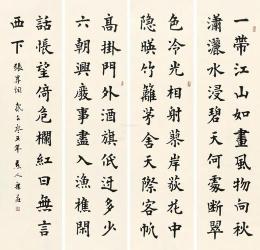 一帶江山如畫風物向秋
瀟灑水浸碧天何處斷翠
色冷光相射蓼岸荻花中
隱暎竹籬茅舍天際客帆
高掛門外酒旗低迓多少
六朝興廢事盡入漁樵閒
話悵望倚危欄紅日無言
西下 張昇詞